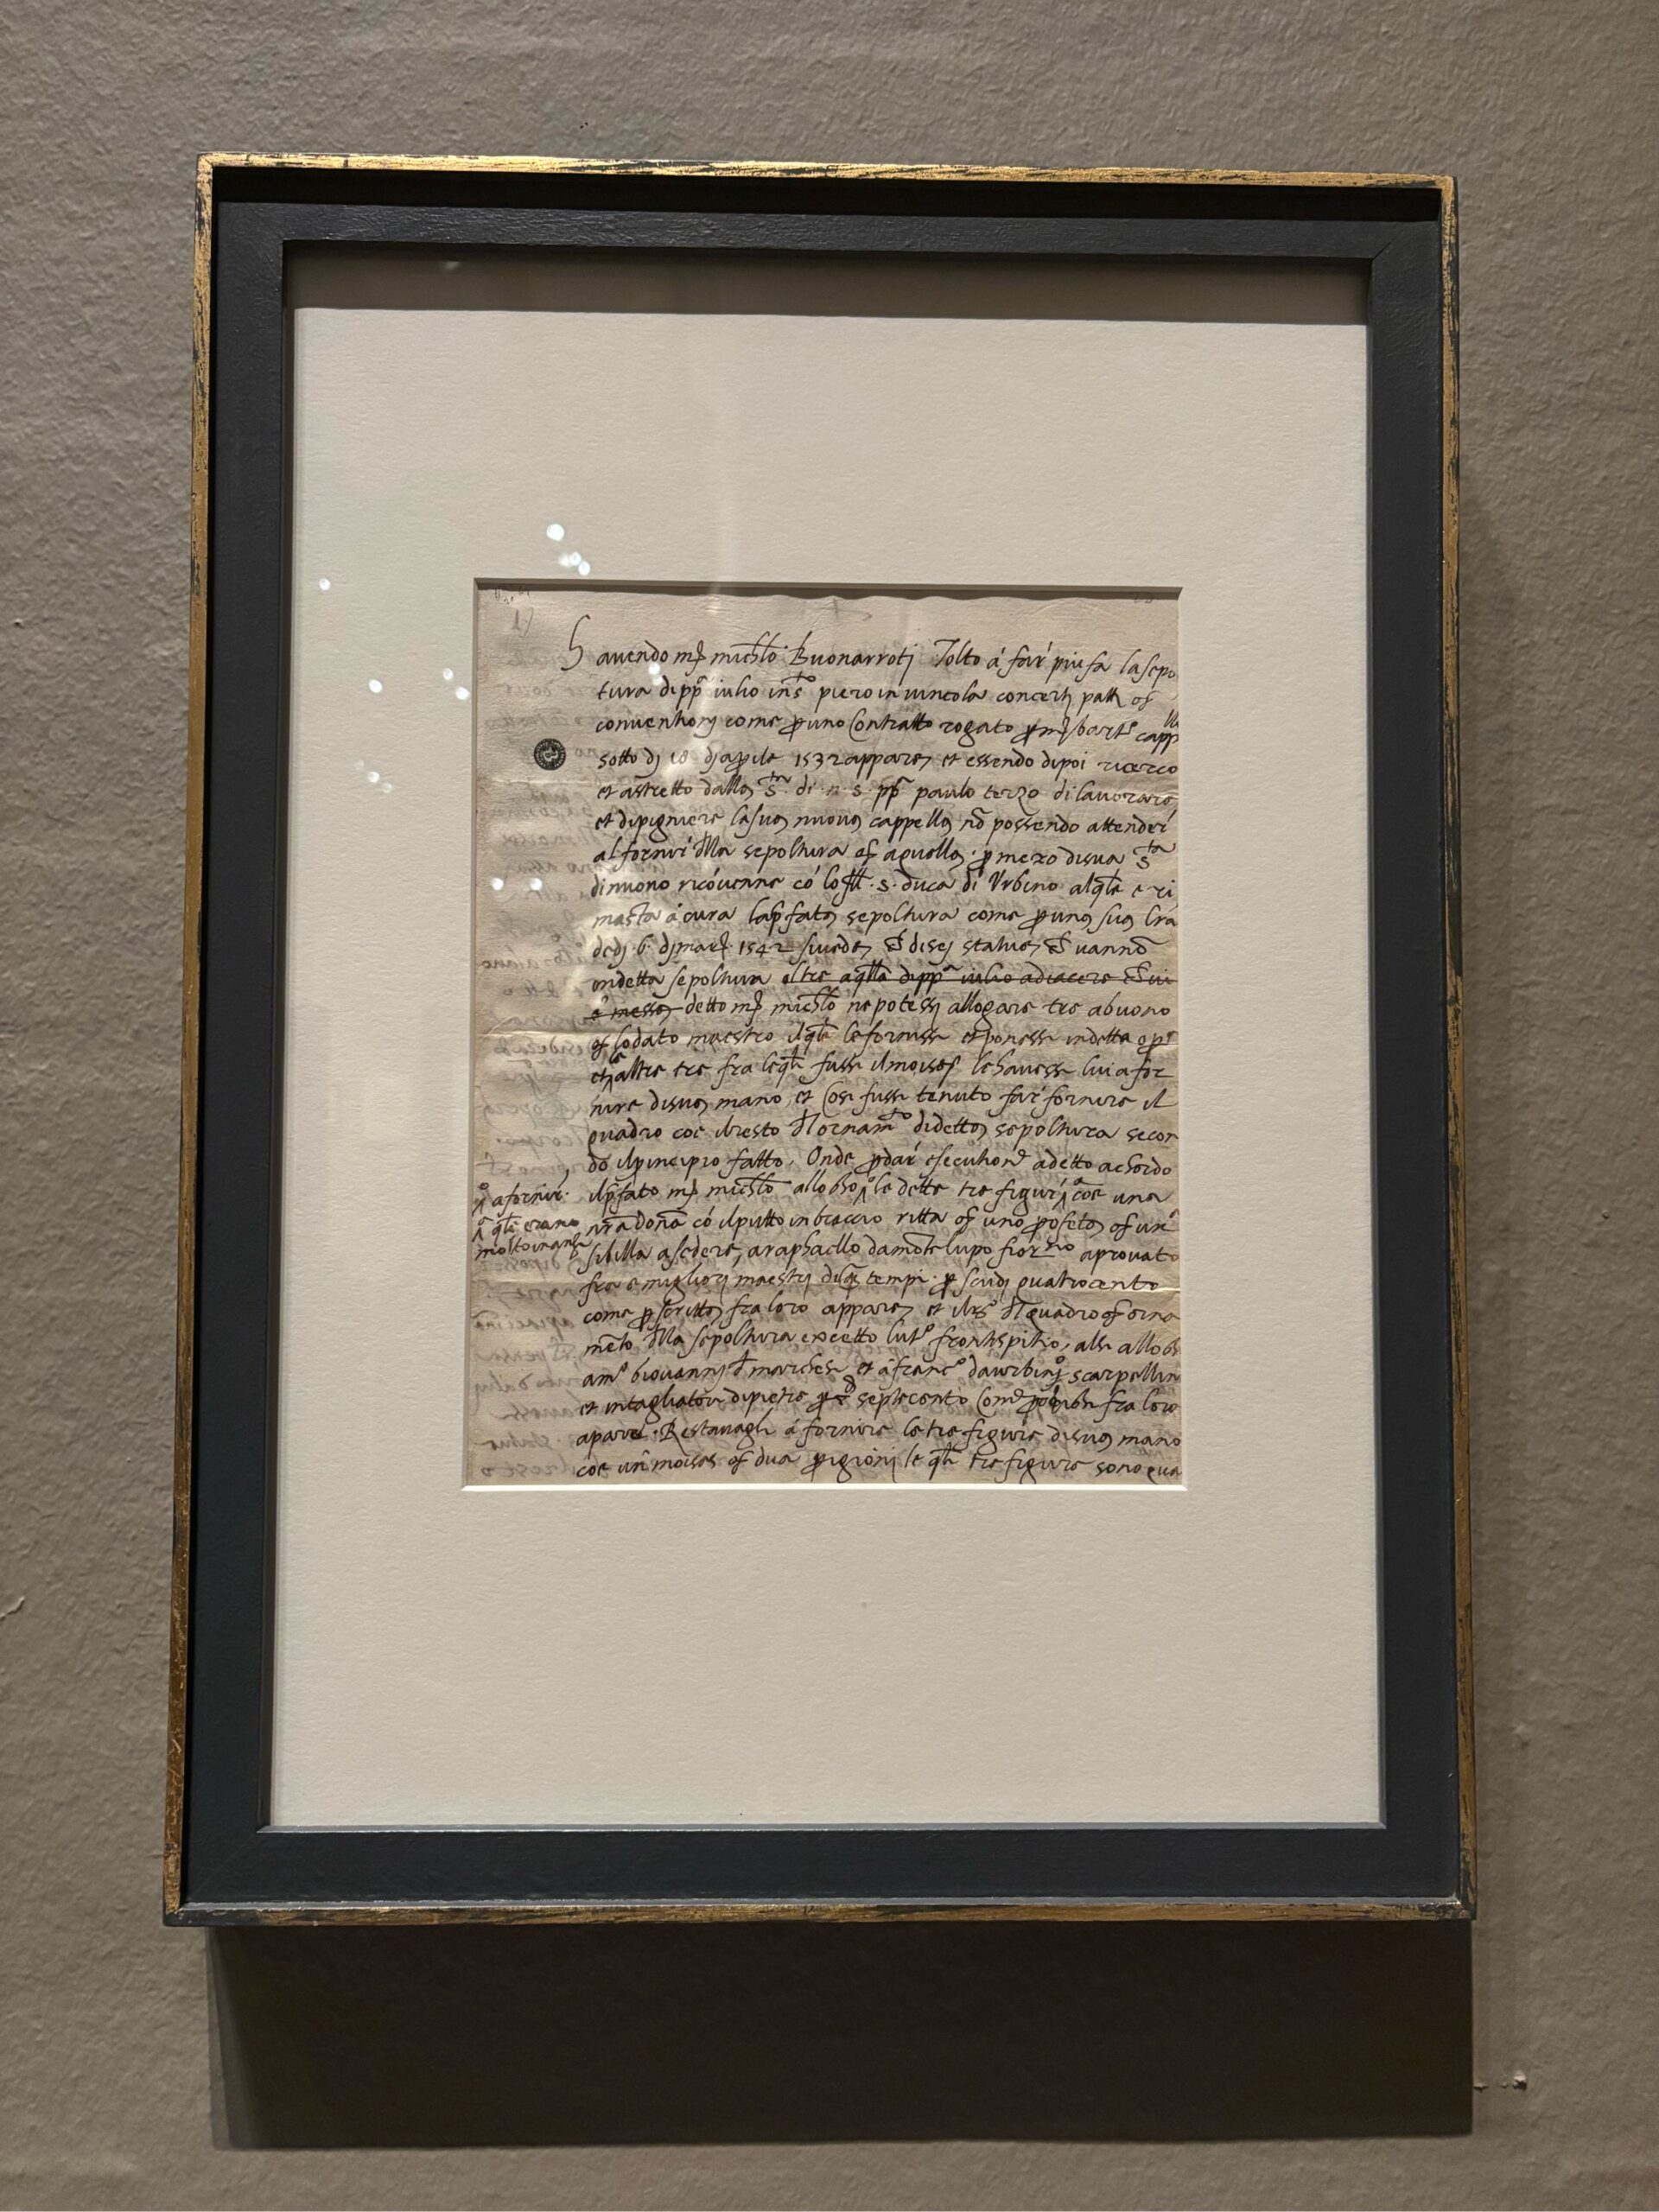 Havendo mʳ michᵉlo Buonarrotj Tolto á far' piu fa la sepo
tura di pp iulio in sᵗᵒ piero in vincola con certj patti et
conventionj come p uno Contratto rogato p mʳ bartᵒ capp
sotto dj 18 dj aprile 1532 appare, et essendo dipoi ricerco
et astretto dalla Sᵗᵃ di n. s. pp paulo terzo di lavorare
et dipigniere la sua nuova cappella nō possendo attender'
al fornir' della sepoltura et a quella, p mezo di sua Sᵗᵃ
di nuovo ricōvenne cō lo s. duca di Urbino al qle e ri
masta á cura la pfata sepoltura come p una sua lra
de dj 6 dj 1542 di sej statue vanno
in detta sepoltura oltre a qlla di pp iulio a diacere
è messa detto mʳ michᵉlo ne potessj allogare tre a buono
et lodato maestro il qle le fornisse et ponesse in detta opᵃ
et le altre tre fra le qli fusse il moises le havesse lui a for
nire di sua mano, et Cosi fusse tenuto far' fornire il
quadro cioe il resto dell ornamᵗᵒ di detta sepoltura secon
do il principio fatto. Onde p dar' esecutione a detto achordo
il pfato mʳ michᵉlo allogo le dette tre figur' cioe una
a fornir'
nrā donā cō il putto in braccio ritta et uno profeta et una
qli erano
molto inanzi
sibilla a sedere, a raphaello da monte lupo fiorⁿᵒ aprovato
fra e migliorj maestrj di qsti tempi p scudj quatrocento
come p scritta fra loro appare, et il resᵗᵒ dell quadro et orna
mēto della sepoltura eccetto l'ultᵒ frontispitio, alsi allogo
a mᵒ Giovannj d marchesi et á francᵒ da urbino scarpellin
et intagliatori di pietre p septecento Come p fra loro
apare. Restavagli á fornire le tre figure di sua mano
cioe un moises et dua prigionj le qli tre figure sono qua